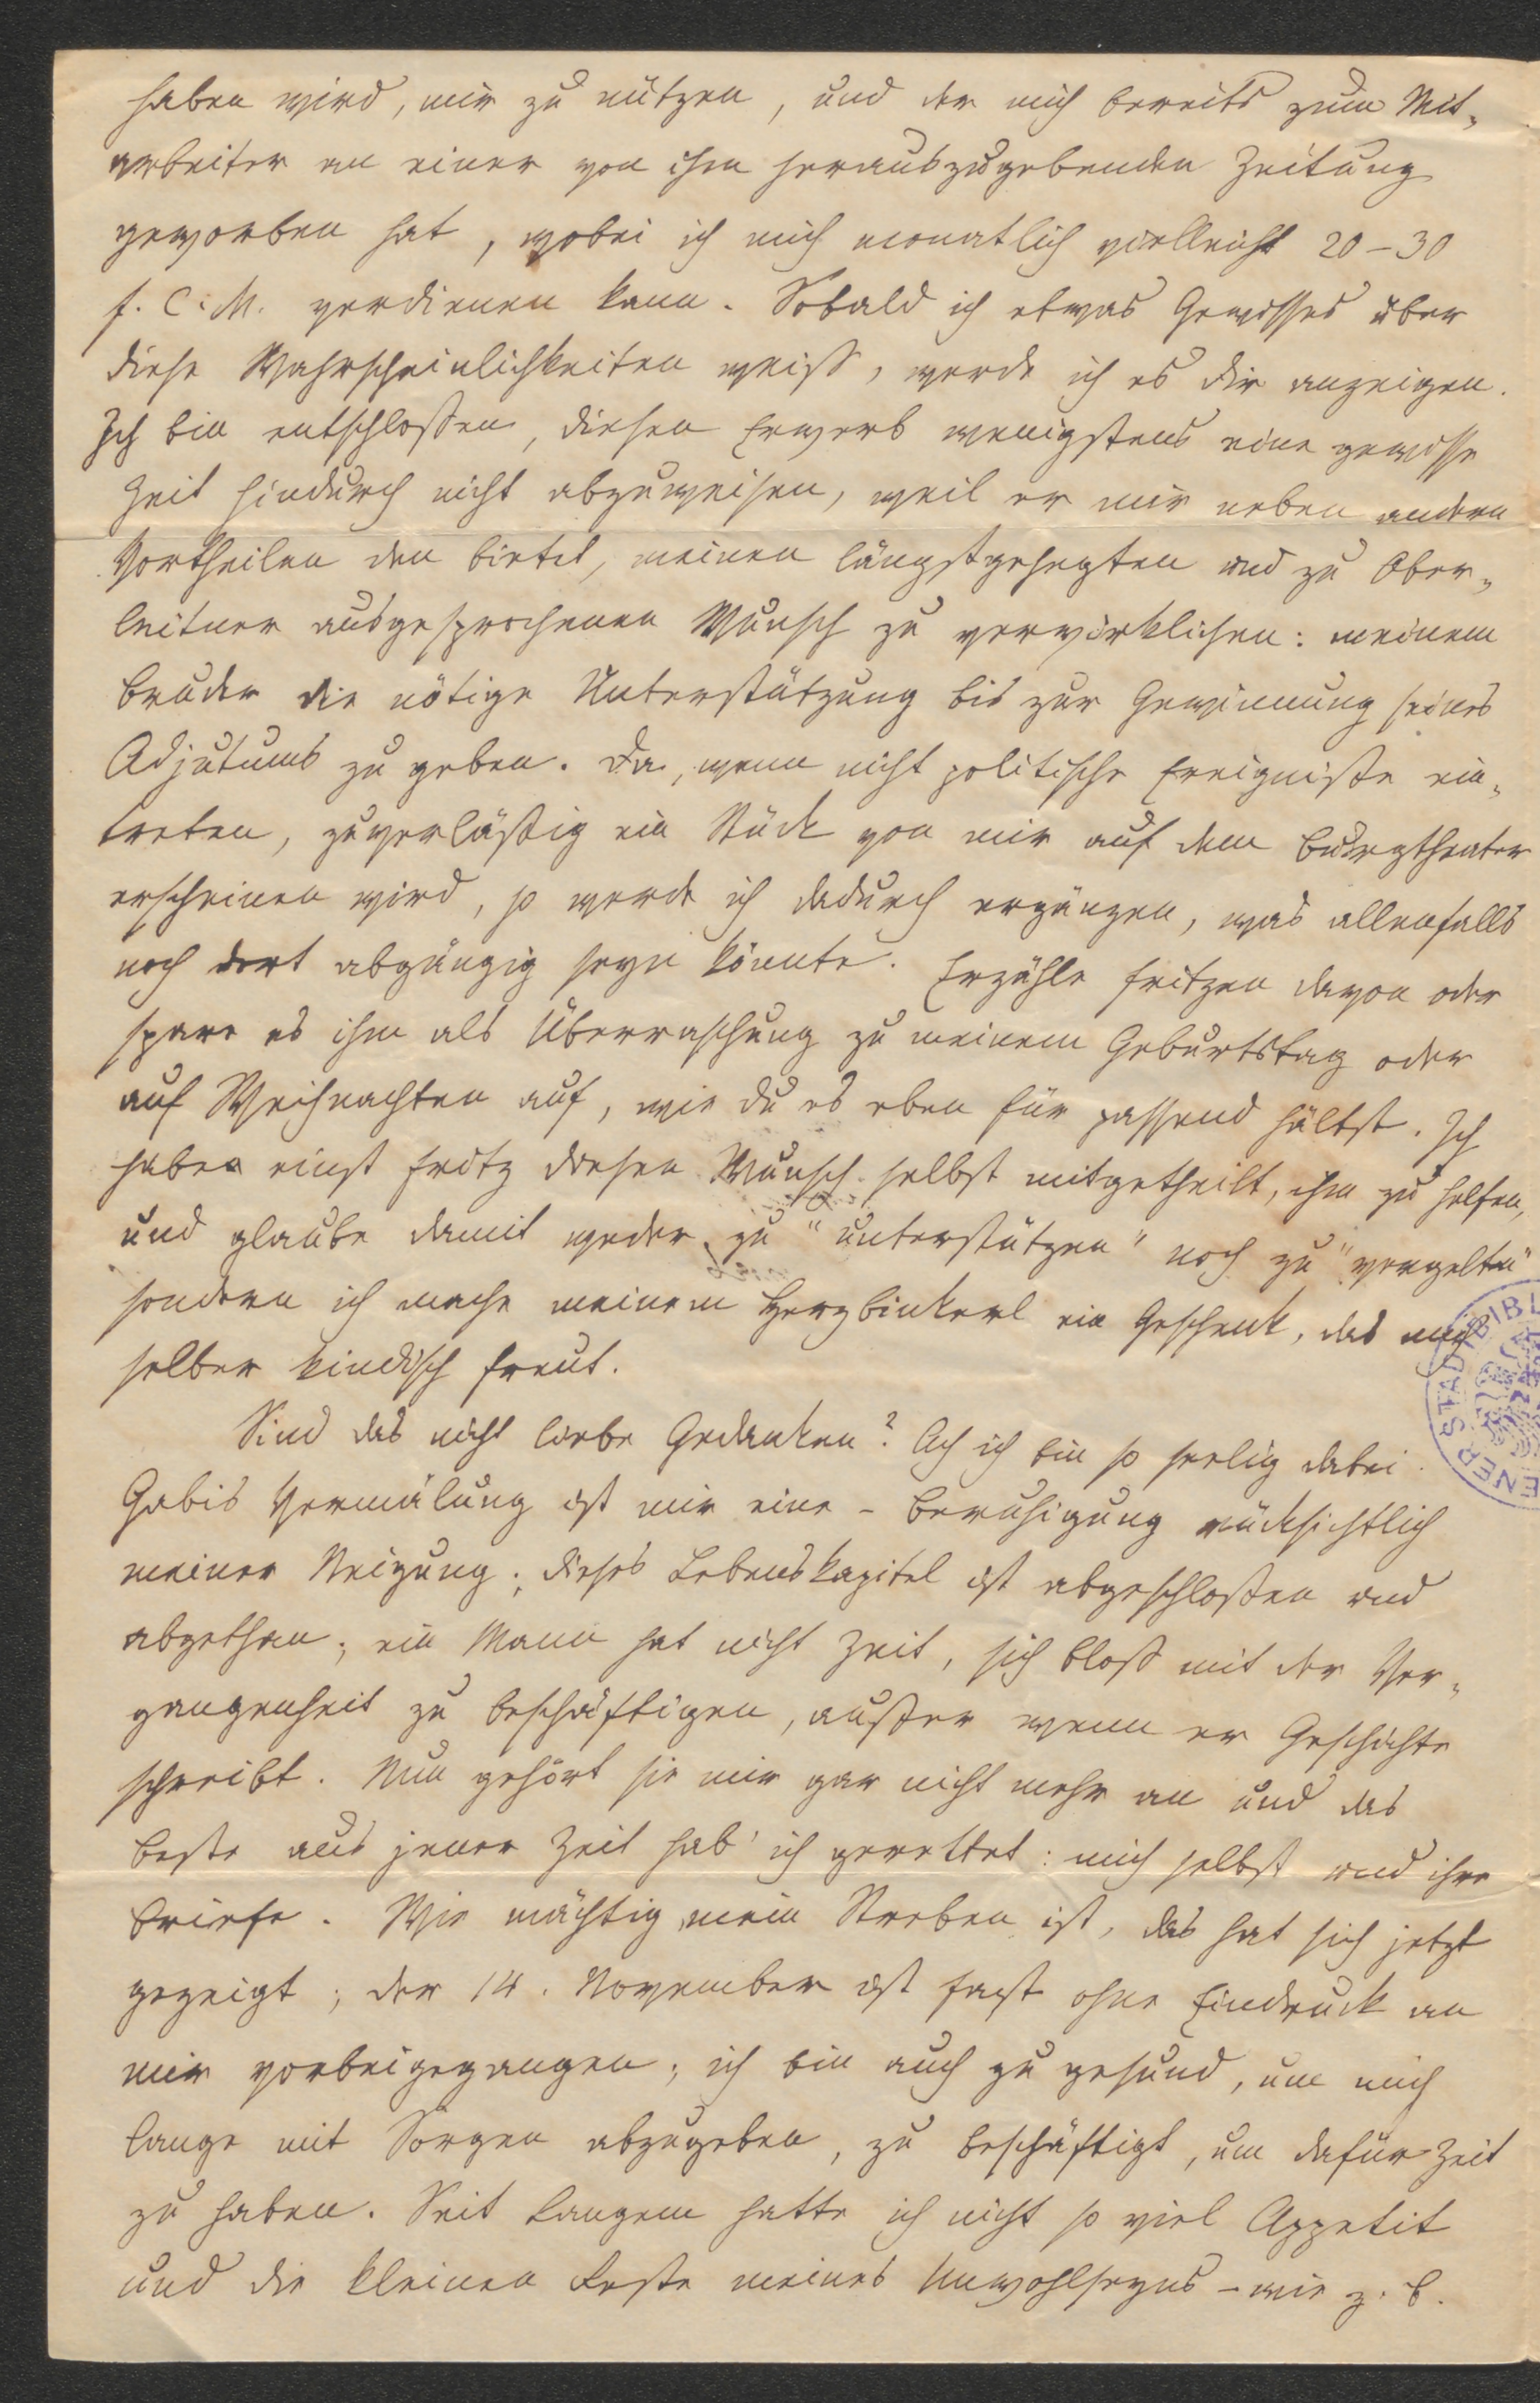 haben wird, mir zu nützen, und der mich bereits zum Mit-
arbeiter an einer von ihm herauszugebenden Zeitung
geworben hat, wobei ich mich monatlich vielleicht 20–30
f. C. M. verdienen kann. Sobald ich etwas Gewisses über
diese Wahrscheinlichkeiten weiß, werde ich es dir anzeigen.
Ich bin entschloßen, diesen Erwerb wenigstens eine gewisse
Zeit hindurch nicht abzuweisen, weil er mir neben andern
Vortheilen den bietet, meinen längstgehegten und zu Ober-
leitner ausgesprochenen Wunsch zu verwirklichen: meinem
Bruder die nötige Unterstützung bis zur Gewinnung seines
Adjutums zu geben. Da, wenn nicht politische Ereigniße ein-
treten, zuverläßig ein Stück von mir auf dem Burgtheater
erscheinen wird, so werde ich dadurch ergänzen, was allenfalls
noch dort abgängig seyn könnte. Erzähle Fritzen davon oder
spare es ihm als Überraschung zu meinem Geburtstag oder
auf Weihnachten auf, wie du es eben für passend hältst. Ich
habe einst Fritz diesen Wunsch selbst mitgetheilt, ihm zu helfen,
und glaube damit weder zu "unterstützen" noch zu "vergelten"
sondern ich mache meinem Herzbinkerl ein Geschenk, das mich
selber kindisch freut.
Sind das nicht liebe Gedanken? Ach ich bin so seelig dabei.
Gabis Vermälung ist mir eine – Beruhigung rücksichtlich
meiner Neigung; dieses Lebenskapitel ist abgeschloßen und
abgethan; ein Mann hat nicht Zeit, sich bloß mit der Ver-
gangenheit zu beschäftigen, außer wenn er Geschichte
schreibt. Nun gehört sie mir gar nicht mehr an und das
Beste aus jener Zeit hab' ich gerettet: mich selbst und ihre
Briefe. Wie mächtig mein Streben ist, das hat sich jetzt
gezeigt; der 14. November ist fast ohne Eindruck an
mir vorbeigegangen; ich bin auch zu gesund, um mich
lange mit Sorgen abzugeben, zu beschäftigt, um dafür Zeit
zu haben. Seit langem hatte ich nicht so viel Appetit
und die kleinen Reste meines Unwohlseyns – wie z. B.
ENER STADTBIBL